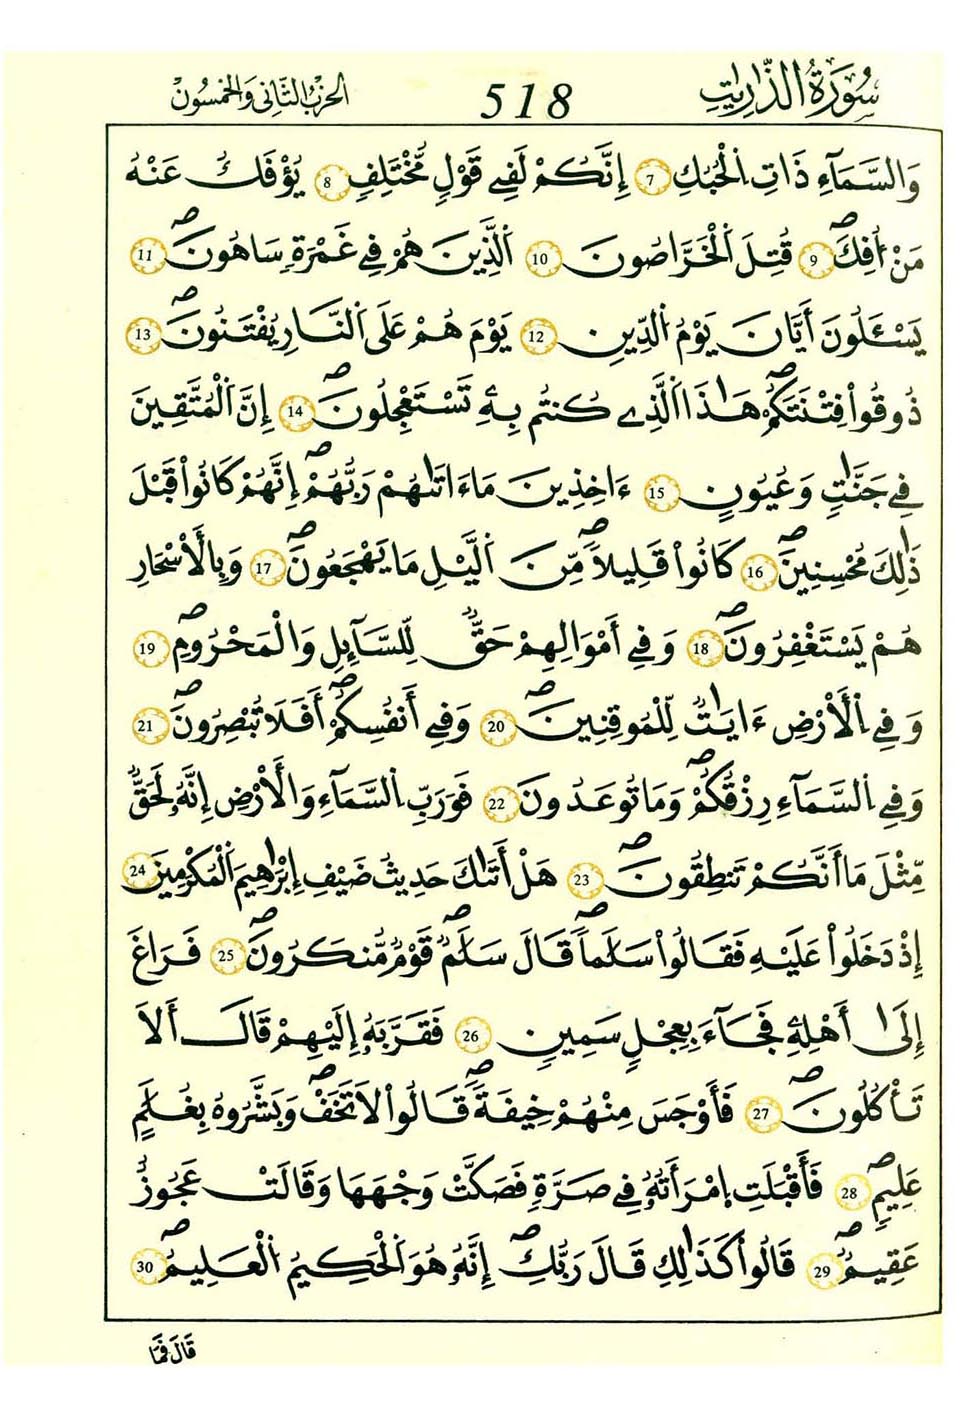 سُورَةُ الذَّارِيَٰتِ 518 الحزب الثاني والخمسون
وَالسَّمَآءِ ذَاتِ اِ۬لْحُبُكِ 7 إِنَّكُمْ لَفِے قَوْلٖ مُّخْتَلِفٖ 8 يُؤْفَكُ عَنْهُ
مَنْ ا۟فِكَۖ 9 قُتِلَ اَ۬لْخَرَّاصُونَ 10 اَ۬لذِينَ هُمْ فِے غَمْرَةٖ سَاهُونَۖ 11
يَسْـَٔلُونَ أَيَّانَ يَوْمُ اُ۬لدِّينِ 12 يَوْمَ هُمْ عَلَى اَ۬لنَّارِ يُفْتَنُونَۖ 13
ذُوقُواْ فِتْنَتَكُمْۖ هَٰذَا اَ۬لذِے كُنتُم بِهِۦ تَسْتَعْجِلُونَۖ 14 إِنَّ اَ۬لْمُتَّقِينَ
فِے جَنَّٰتٖ وَعُيُونٍ 15 ءَاخِذِينَ مَا ءَاتَىٰهُمْ رَبُّهُمْۖ إِنَّهُمْ كَانُواْ قَبْلَ
ذَٰلِكَ مُحْسِنِينَۖ 16 كَانُواْ قَلِيلاٗۖ مِّنَ اَ۬لَّيْلِ مَا يَهْجَعُونَۖ 17 وَبِالْأَسْحَارِ
هُمْ يَسْتَغْفِرُونَۖ 18 وَفِے أَمْوَٰلِهِمْ حَقّٞ لِّلسَّآئِلِ وَالْمَحْرُومِۖ 19
وَفِے اِ۬لْأَرْضِ ءَايَٰتٞ لِّلْمُوقِنِينَۖ 20 وَفِے أَنفُسِكُمْۖ أَفَلَا تُبْصِرُونَۖ 21
وَفِے اِ۬لسَّمَآءِ رِزْقُكُمْۖ وَمَا تُوعَدُونَ 22 فَوَرَبِّ اِ۬لسَّمَآءِ وَالْأَرْضِ إِنَّهُۥ لَحَقّٞ
مِّثْلَ مَا أَنَّكُمْ تَنطِقُونَۖ 23 هَلْ أَتَىٰكَ حَدِيثُ ضَيْفِ إِبْرَٰهِيمَ اَ۬لْمُكْرَمِينَ 24
إِذْ دَخَلُواْ عَلَيْهِ فَقَالُواْ سَلَٰماٗۖ قَالَ سَلَٰمٞۖ قَوْمٞ مُّنكَرُونَۖ 25 فَرَاغَ
إِلَىٰ أَهْلِهِۦ فَجَآءَ بِعِجْلٖ سَمِينٖ 26 فَقَرَّبَهُۥ إِلَيْهِمْ قَالَ أَلَا
تَأْكُلُونَۖ 27 فَأَوْجَسَ مِنْهُمْ خِيفَةٗۖ قَالُواْ لَا تَخَفْۖ وَبَشَّرُوهُ بِغُلَٰمٍ
عَلِيمٖۖ 28 فَأَقْبَلَتِ اِ۪مْرَأَتُهُۥ فِے صَرَّةٖ فَصَكَّتْ وَجْهَهَا وَقَالَتْ عَجُوزٌ
عَقِيمٞۖ 29 قَالُواْ كَذَٰلِكِ قَالَ رَبُّكِۖ إِنَّهُۥ هُوَ اَ۬لْحَكِيمُ اُ۬لْعَلِيمُۖ 30
قَالَ فَمَا